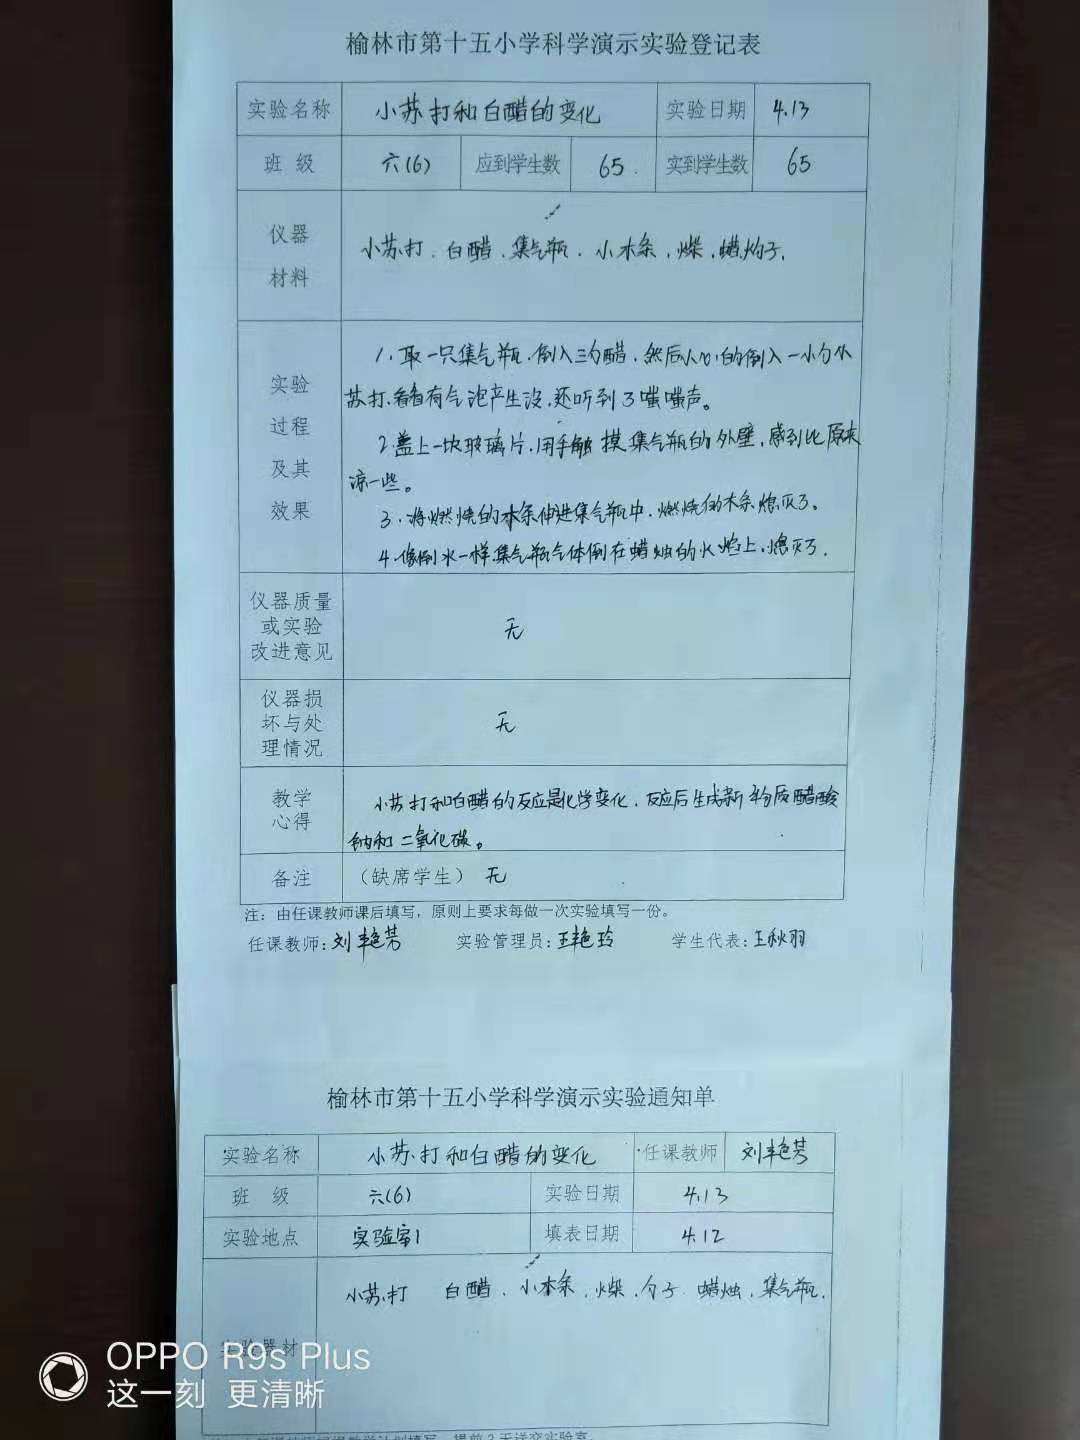 榆林市第十五小学科学演示实验登记表
实验名称 小苏打和白醋的变化 实验日期 4.13
班 级 六(6) 应到学生数 65 实到学生数 65
仪器
材料
小苏打、白醋、集气瓶、小木条、
实验
过程
及其
效果
1、取一只集气瓶,倒入三勺醋,然后小心的倒入一小勺小
苏打,看看有气泡产生没,还听到了嗤嗤声。
2.盖上一块玻璃片,用手触摸集气瓶的外壁,感到比原来
凉一些。
3、将燃烧的木条伸进集气瓶中,燃烧的木条熄灭了。
4.像倒水一样集气瓶气体倒在蜡烛的火焰上,熄灭了.
仪器质量
或实验
改进意见
无
仪器损
坏与处
理情况
无
教学
心得
小苏打和白醋的反应是化学变化,反应后生成新物质醋酸
钠和二氧化碳。
备注 (缺席学生) 无
注:由任课教师课后填写,原则上要求每做一次实验填写一份。
任课教师:刘艳芳 实验管理员:王艳玲 学生代表:王秋羽
榆林市第十五小学科学演示实验通知单
实验名称 小苏打和白醋的变化 任课教师 刘艳芳
班 级 六(6) 实验日期 4.13
实验地点 实验室1 填表日期 4.12
实验器材
小苏打 白醋、小木条、 勺子 蜡烛、集气瓶.
OPPO R9s Plus
这一刻 更清晰